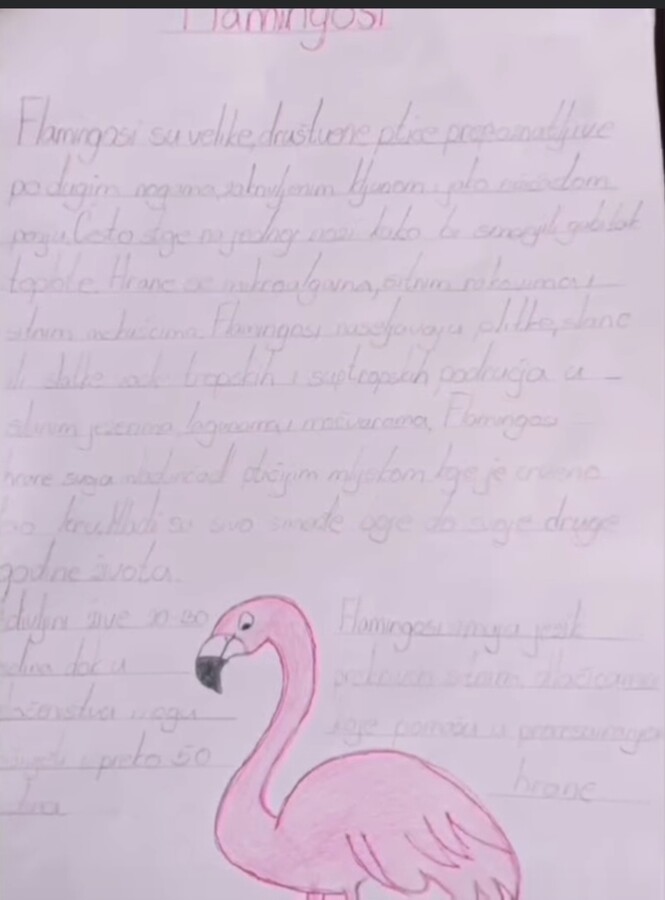 Flamingosi
Flamingosi su velike, društvene ptice prepoznatljive
po dugim nogama, zakrivljenim kljunom i jako
perju. Često stoje na jednoj nozi kako bi smanjili gubitak
topline. Hrane se mikroalgama, sitnim rakovima i
sitnim. Flamingosi naseljavaju plitke, slane
ili slatke vode tropskih i suptropskih područja u
slanim jezerima, lagunama i močvarama. Flamingosi
hrane svoju mladunčad ptičjim mlijekom koje je crveno
kao krv. Mladi su sivo smeđe boje do svoje druge
godine života.
divljini žive 20-30
godina dok u
zatočeništvu mogu
živjeti i preko 50
Flamingosi imaju jezik
prekriven sitnim
koje pomažu u procesuiranju
hrane